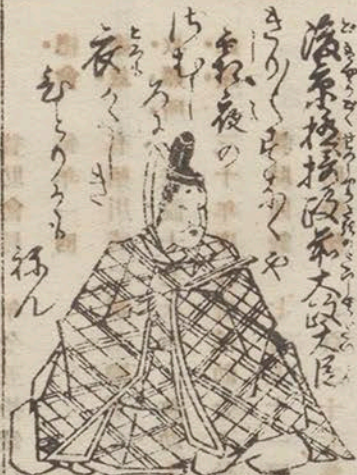 後京極摂政前大政大臣
きり〱すなくや
霜夜の
さむし
ろに
衣かたしき
ひとりかも
ねん